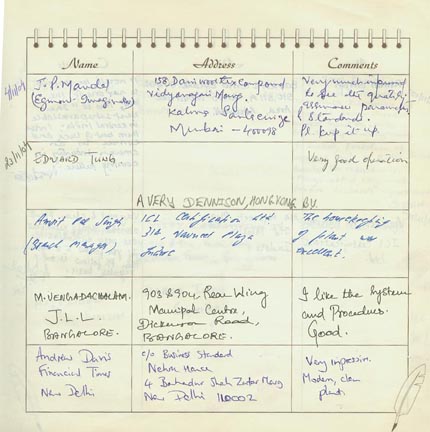 Name Address Comments
J. P. Mandal 158, Dani Wooltex Compound Very much impressed
(Egmont Imagination) Vidyanagari Marg. to see the quality
Kalina Santacruz assurance parameters
Mumbai - 400098 & Standards.
Pl keep it up.
EDWARD TUNG Very good operation
AVERY DENNISON, HONGKONG BV.
Amrit Pal Singh ICL Certification Ltd The housekeeping
(Branch Manager) 312, Plaza of plant was
Indore excellent.
M. VENGADACHALAM. 903 & 904 Rear Wing I like the System
J.L.L. Manipal Centre, and Procedures.
BANGALORE. Dickenson Road, Good.
BANGALORE.
Andrew Davis c/o Business Standard Very impressive.
Financial Times Nehru House Modern, clean
New Delhi 4 Bahadur Shah Zafar Marg plant.
New Delhi 110002